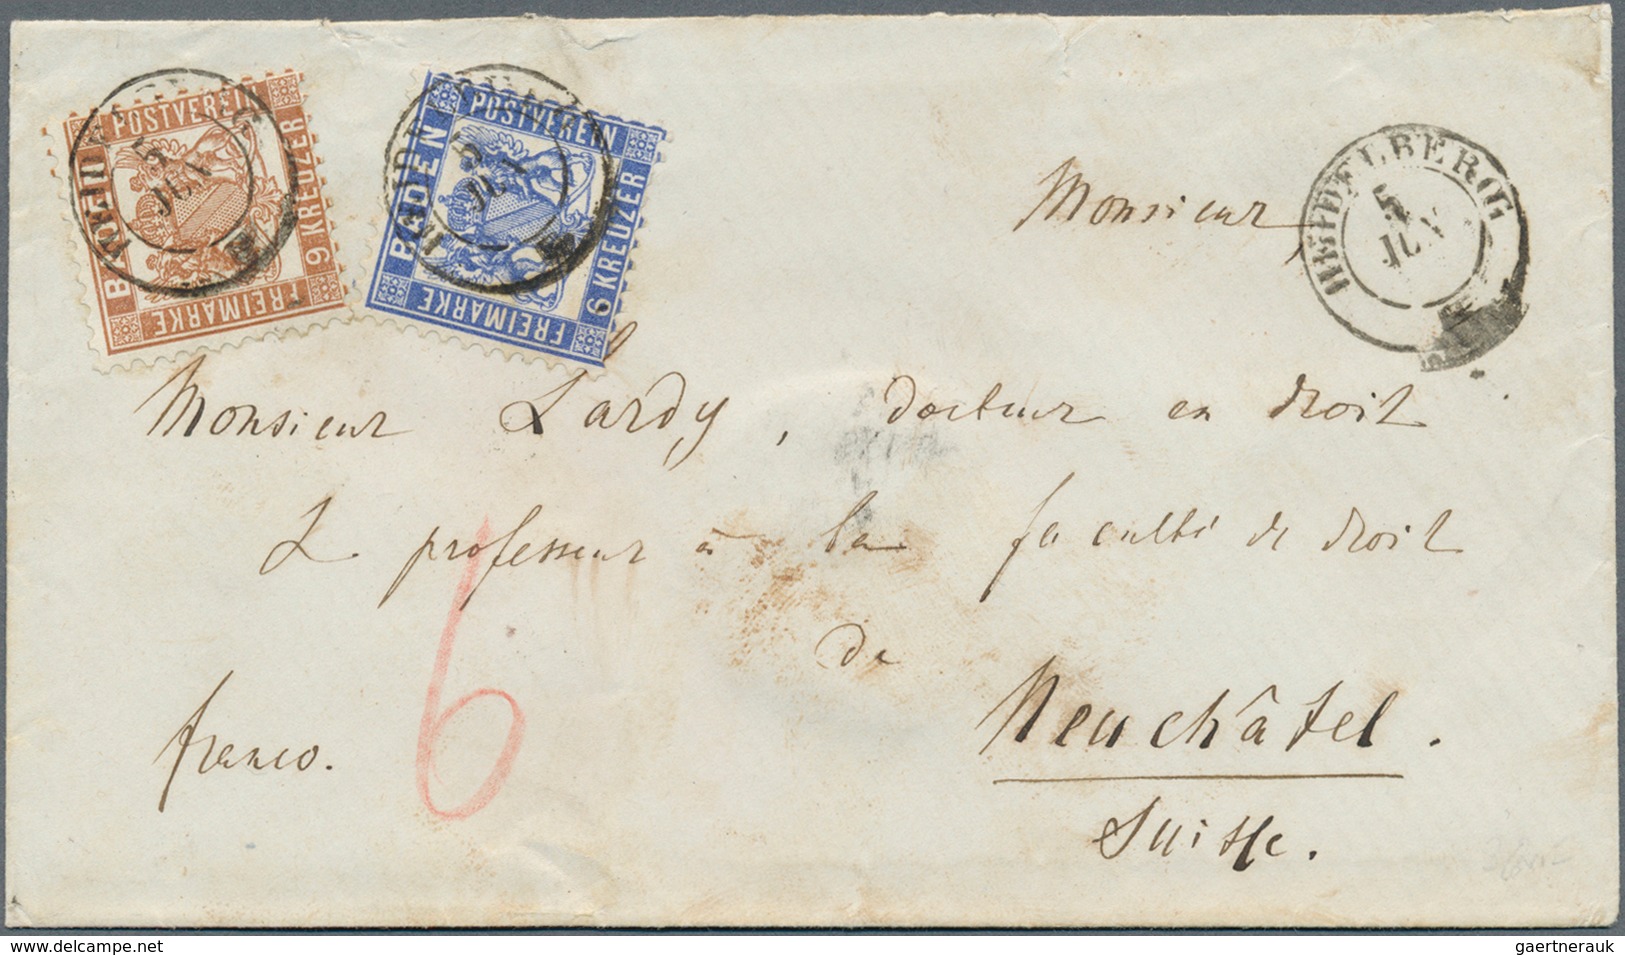 BADEN
POSTVEREIN
9 KREUZER
FREIMARKE
5
JUN
BADEN
POSTVEREIN
6 KREUZER
FREIMARKE
HEIDELBERG
5
JUN
HEIDELBERG
5
JUN
Monsieur
Monsieur Lardy, docteur en droit
& professeur à la faculté de droit
de
Neuchâtel.
Suisse.
franco.
6
www.delcampe.net
gaertnerauk